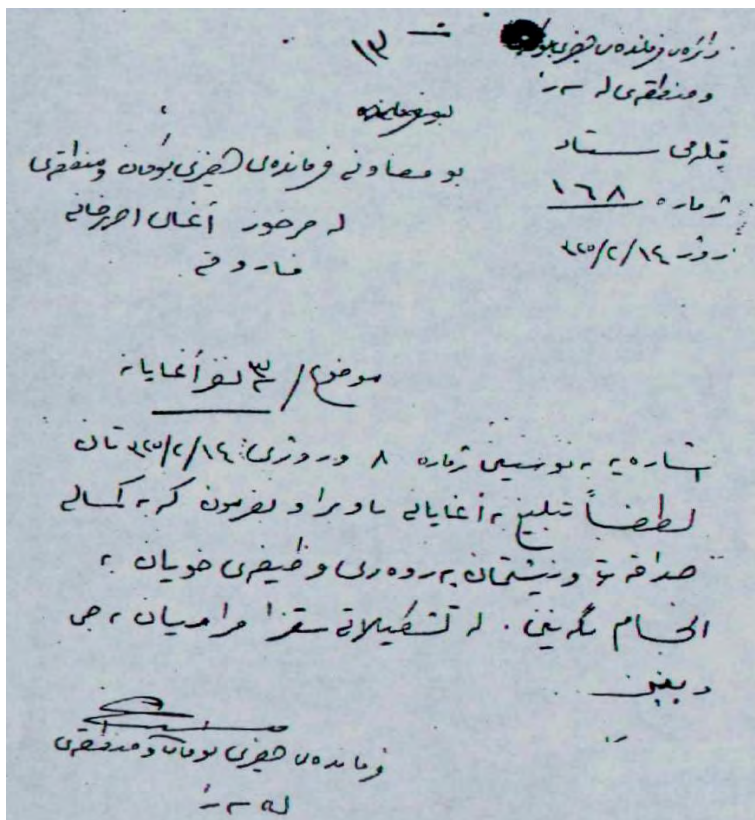 دائرەی فرماندەی هیزی بوکان
و منطقەی لە سەرا
قلمی ستاد
ژمارە ١٦٨
روژ ٣٢٥/٢/١٤
١٣
بو معاونە فرماندەی هیزی بوکان و منطقەی
لە حوضور آغای احمدخانە
فاروقی
موضوع / ٣ نفر آغایانە
اشارە بە نوسینی ژمارە ٨ و روژی ٣٢٥/٢/١٤ تان
لطفاً تبلیغ بە آغایانە ناوبراو بفرمون کە بە کمالە
صداقە و نیشتمان پەروەری وظیفەی خویان بە
انجام بگەینن. لە تشکیلاتە سقزا مرامیان بە جی
دبینن
فرماندەی هیزی بوکان و منطقەی
لە سەرا